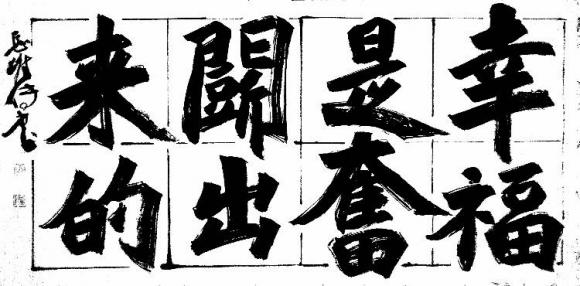 幸福
是奮
鬦出
来的